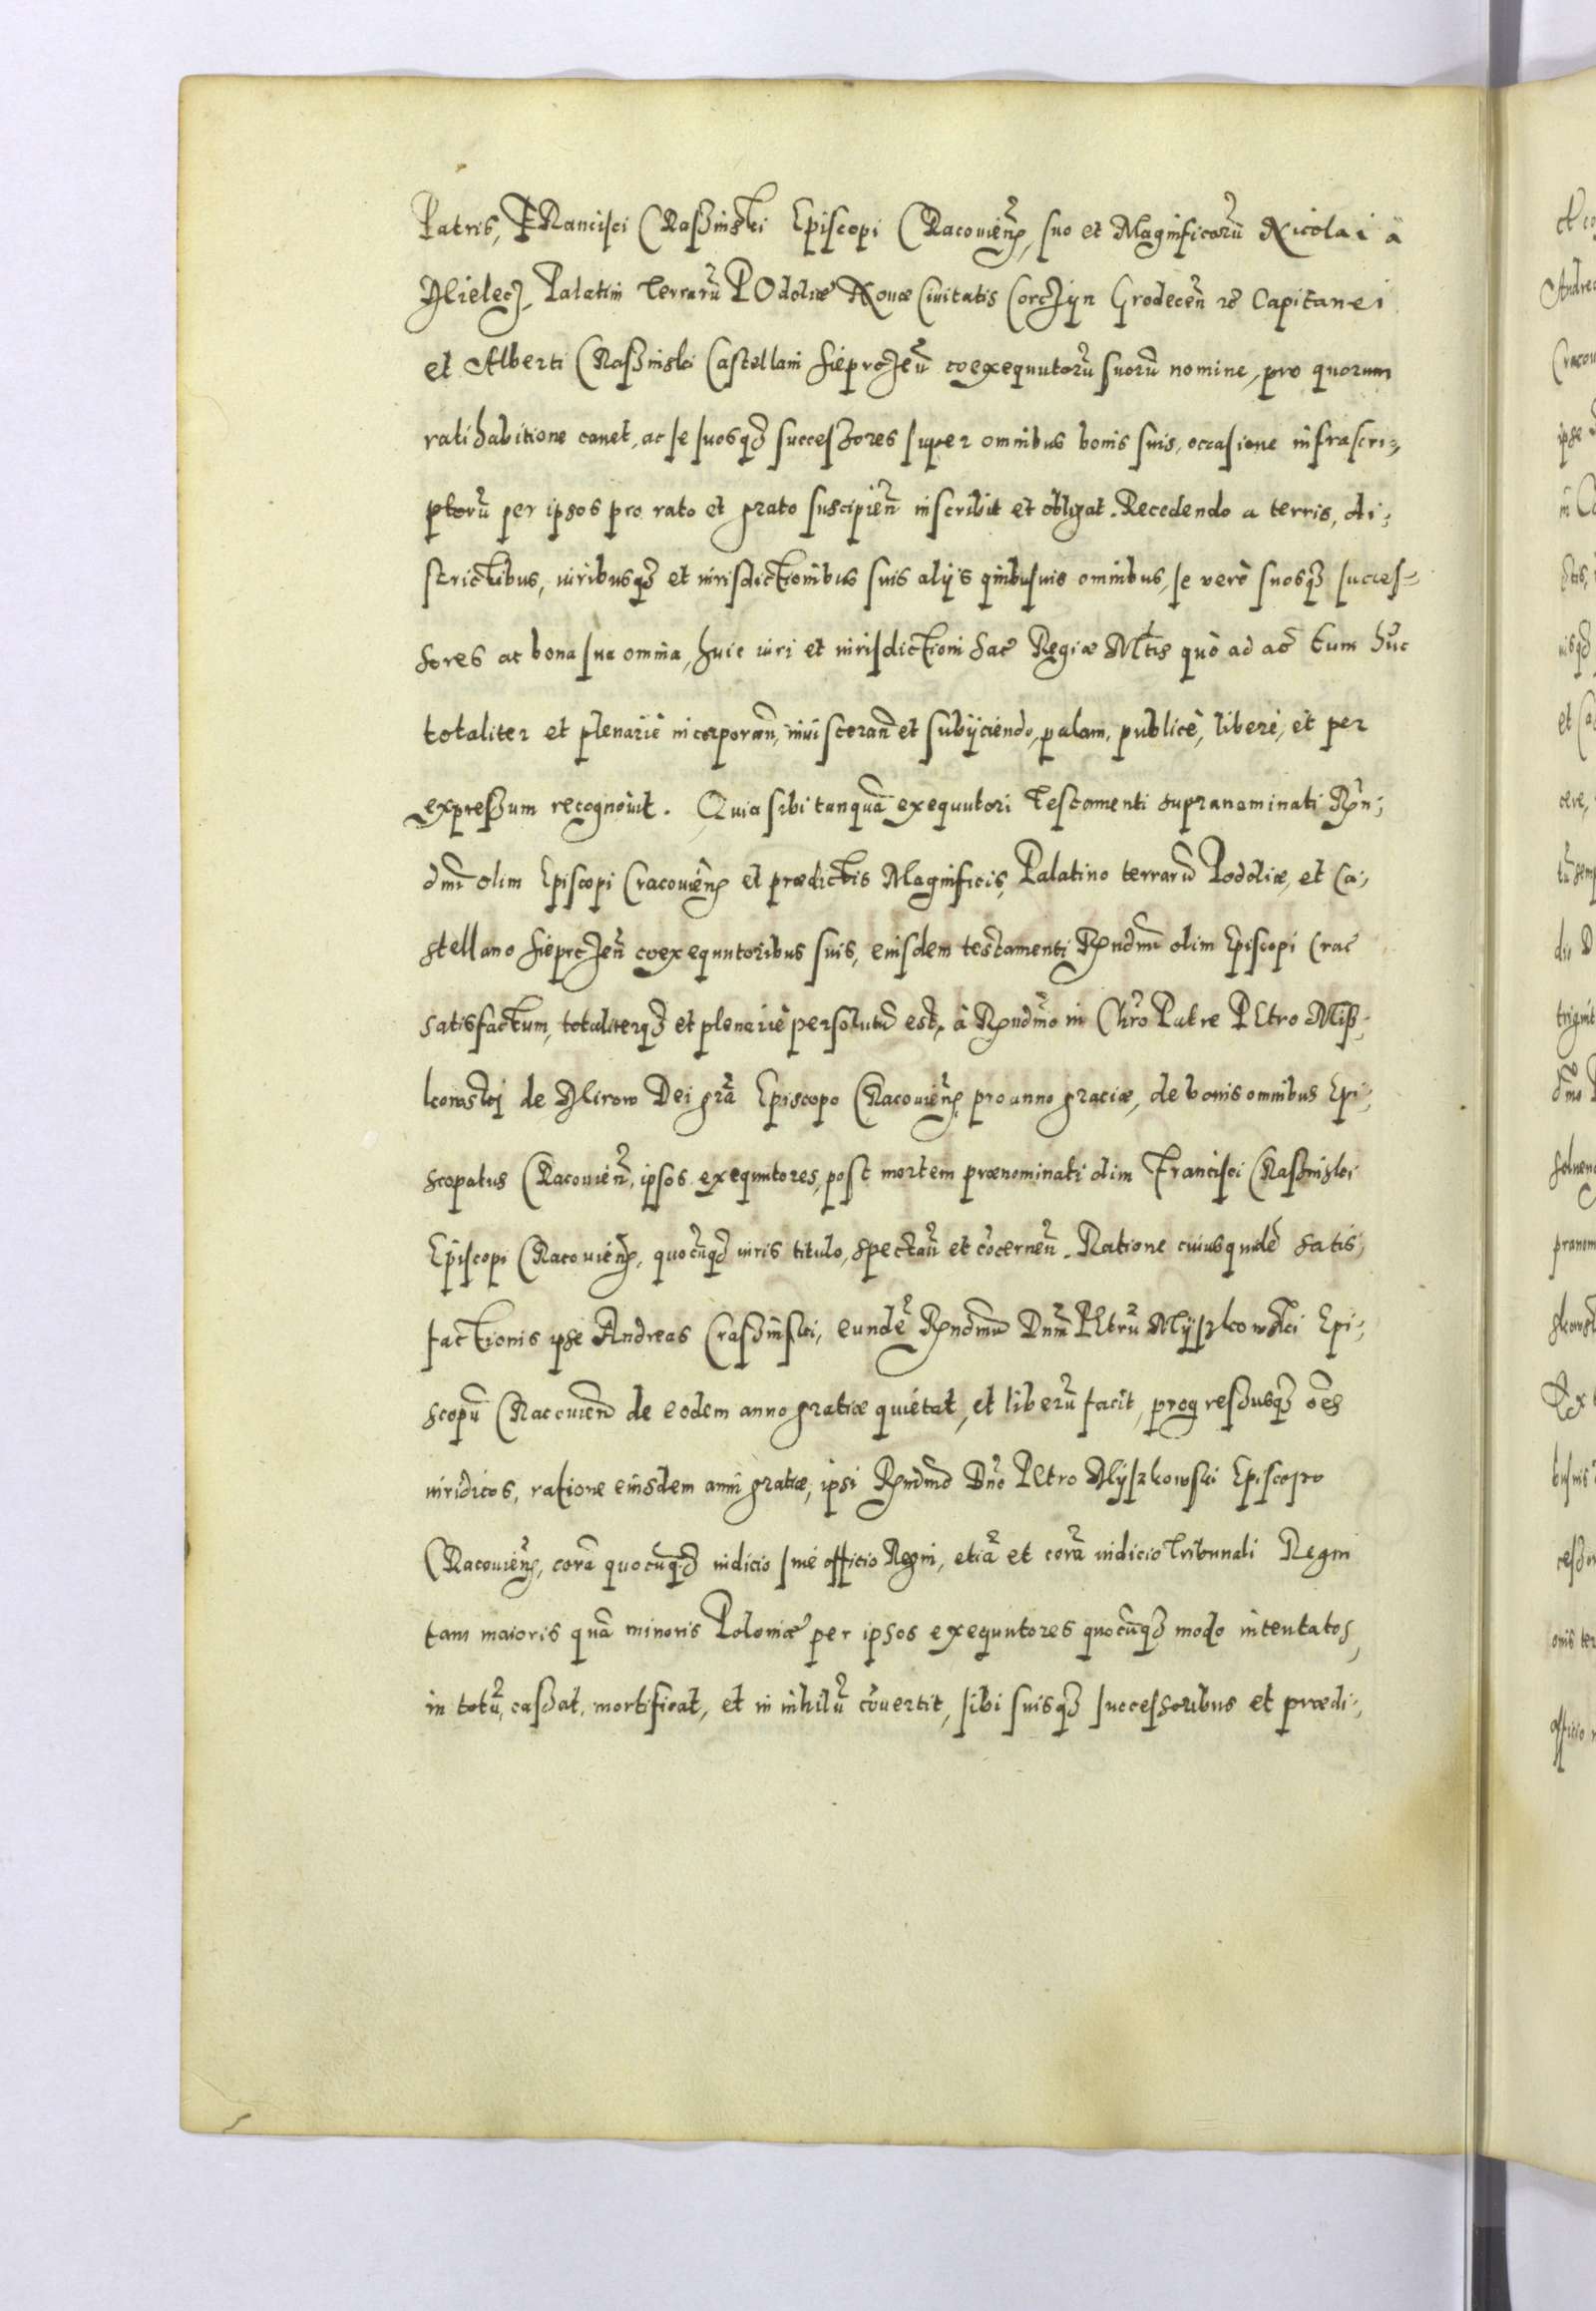 Patris, FRancisci CRaßinski Episcopi CRacouieñ, suo et Magnificorũ Nicolai à
Mielecz, Palatini Terrarũ POdoliæ Nouæ Ciuitatis Corczyn Grodeceñ &c Capitanei
et Alberti CRaßinski Castellani Sieprczeñ coexequutorũ suorũ nomine, pro quorum
ratihabitione cauet, ac se suosq3 successores super omnibus bonis suis, occasione infrascri-
ptorũ per ipsos pro rato et grato suscipieñ inscribit et obligat. Recedendo a terris, di-
strictibus, iuribusq3 et iurisdictionibus suis alijs quibusuis omnibus, se verò suosq3 succes-
sores ac bona sua omnia, huic iuri et iurisdictioni Sac̃ Regiæ Mtis quò ad ac̃tum hũc
totaliter et plenariè incorporañ, inuisceran̄ et subijciendo, palam, publicè, liberè, et per
expressum recognouit. Quia sibi tanquã exequutori Testamenti supranominati Rñ-
dmi olim Episcopi Cracouieñ et prædictis Magnificis, Palatino terrarũ Podoliæ, et Ca-
stellano Sieprczeñ coexequutoribus suis, eiusdem testamenti Rndmi olim Episcopi Crac̃
satisfactum, totaliterq3 et plenariè persolutũ est, à Rndmo in Chr̃o Patre PEtro Miß-
kowskj de Mirow Dei gr̃a Episcopo CRacouieñ, pro anno graciæ, de bonis omnibus Epi-
scopatus CRacouieñ, ipsos exequutores, post mortem prænominati olim Francisci CRaßinski
Episcopi CRacouieñ, quocũq3 iuris titulo, spectañ et cõcerneñ. Ratione cuiusquidẽ satis-
factionis ipse Andreas Craßinski, eundẽ Rndmũ Dnm̃ PEtrũ Myszkowski Epi-
scopũ CRacouieñ de eodem anno gratiæ quietat, et liberũ facit, progressusq3 oẽs
iuridicos, ratione eiusdem anni gratiæ, ipsi Rndmo Dño PEtro Myszkowski Episcopo
CRacouieñ, corã quocũq3 iudicio siue officio Regni, etiã et corã iudicio Tribunali Regni
tam maioris quã minoris Poloniæ per ipsos exequutores quocũq3 modo intentatos,
in totũ, cassat, mortificat, et in nihilũ cõuertit, sibi suisq3 successoribus et prædi-